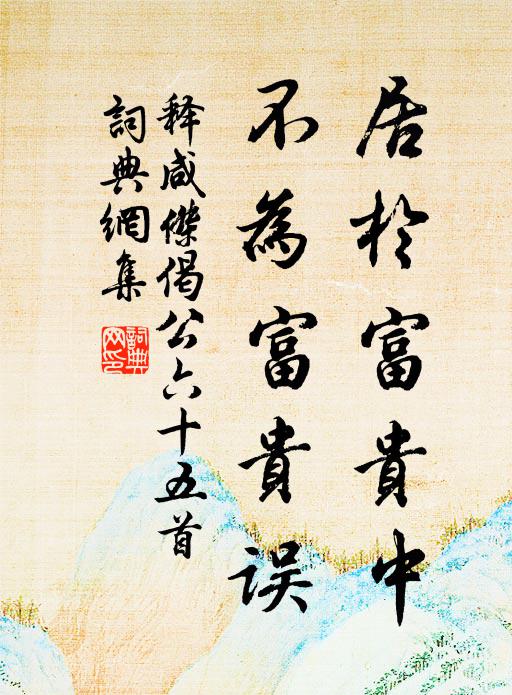 居於富貴中
不為富貴误
释咸傑偈公六十五首
詞典網集
詞典网印